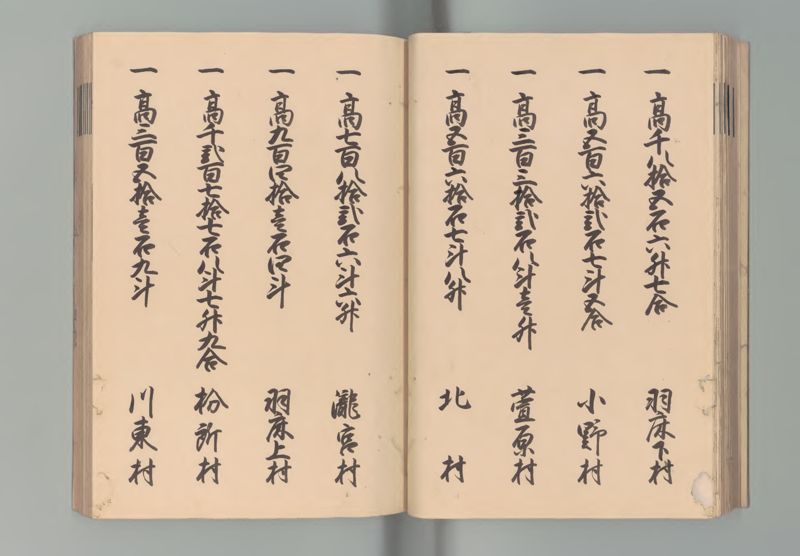 一 高千八拾五石六升七合 羽床下村
一 高五百六拾弐石七斗五合 小野村
一 高三百三拾弐石八斗壱升 萱原村
一 高五百六拾石七斗八升 北村
一 高七百八拾弐石六斗六升 瀧宮村
一 高九百四拾壱石四斗 羽床上村
一 高千弐百七拾七石八斗七升九合 枌所村
一 高三百五拾壱石九斗 川東村